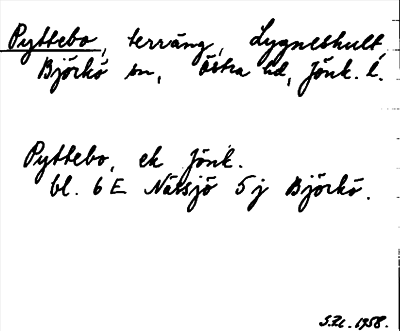 Pyttebo, terräng, Lygneshult
Björkö sn, Östra hd, Jönk. l.
Pyttebo, ek Jönk.
bl. 6E Nässjö 5j Björkö.
1958.